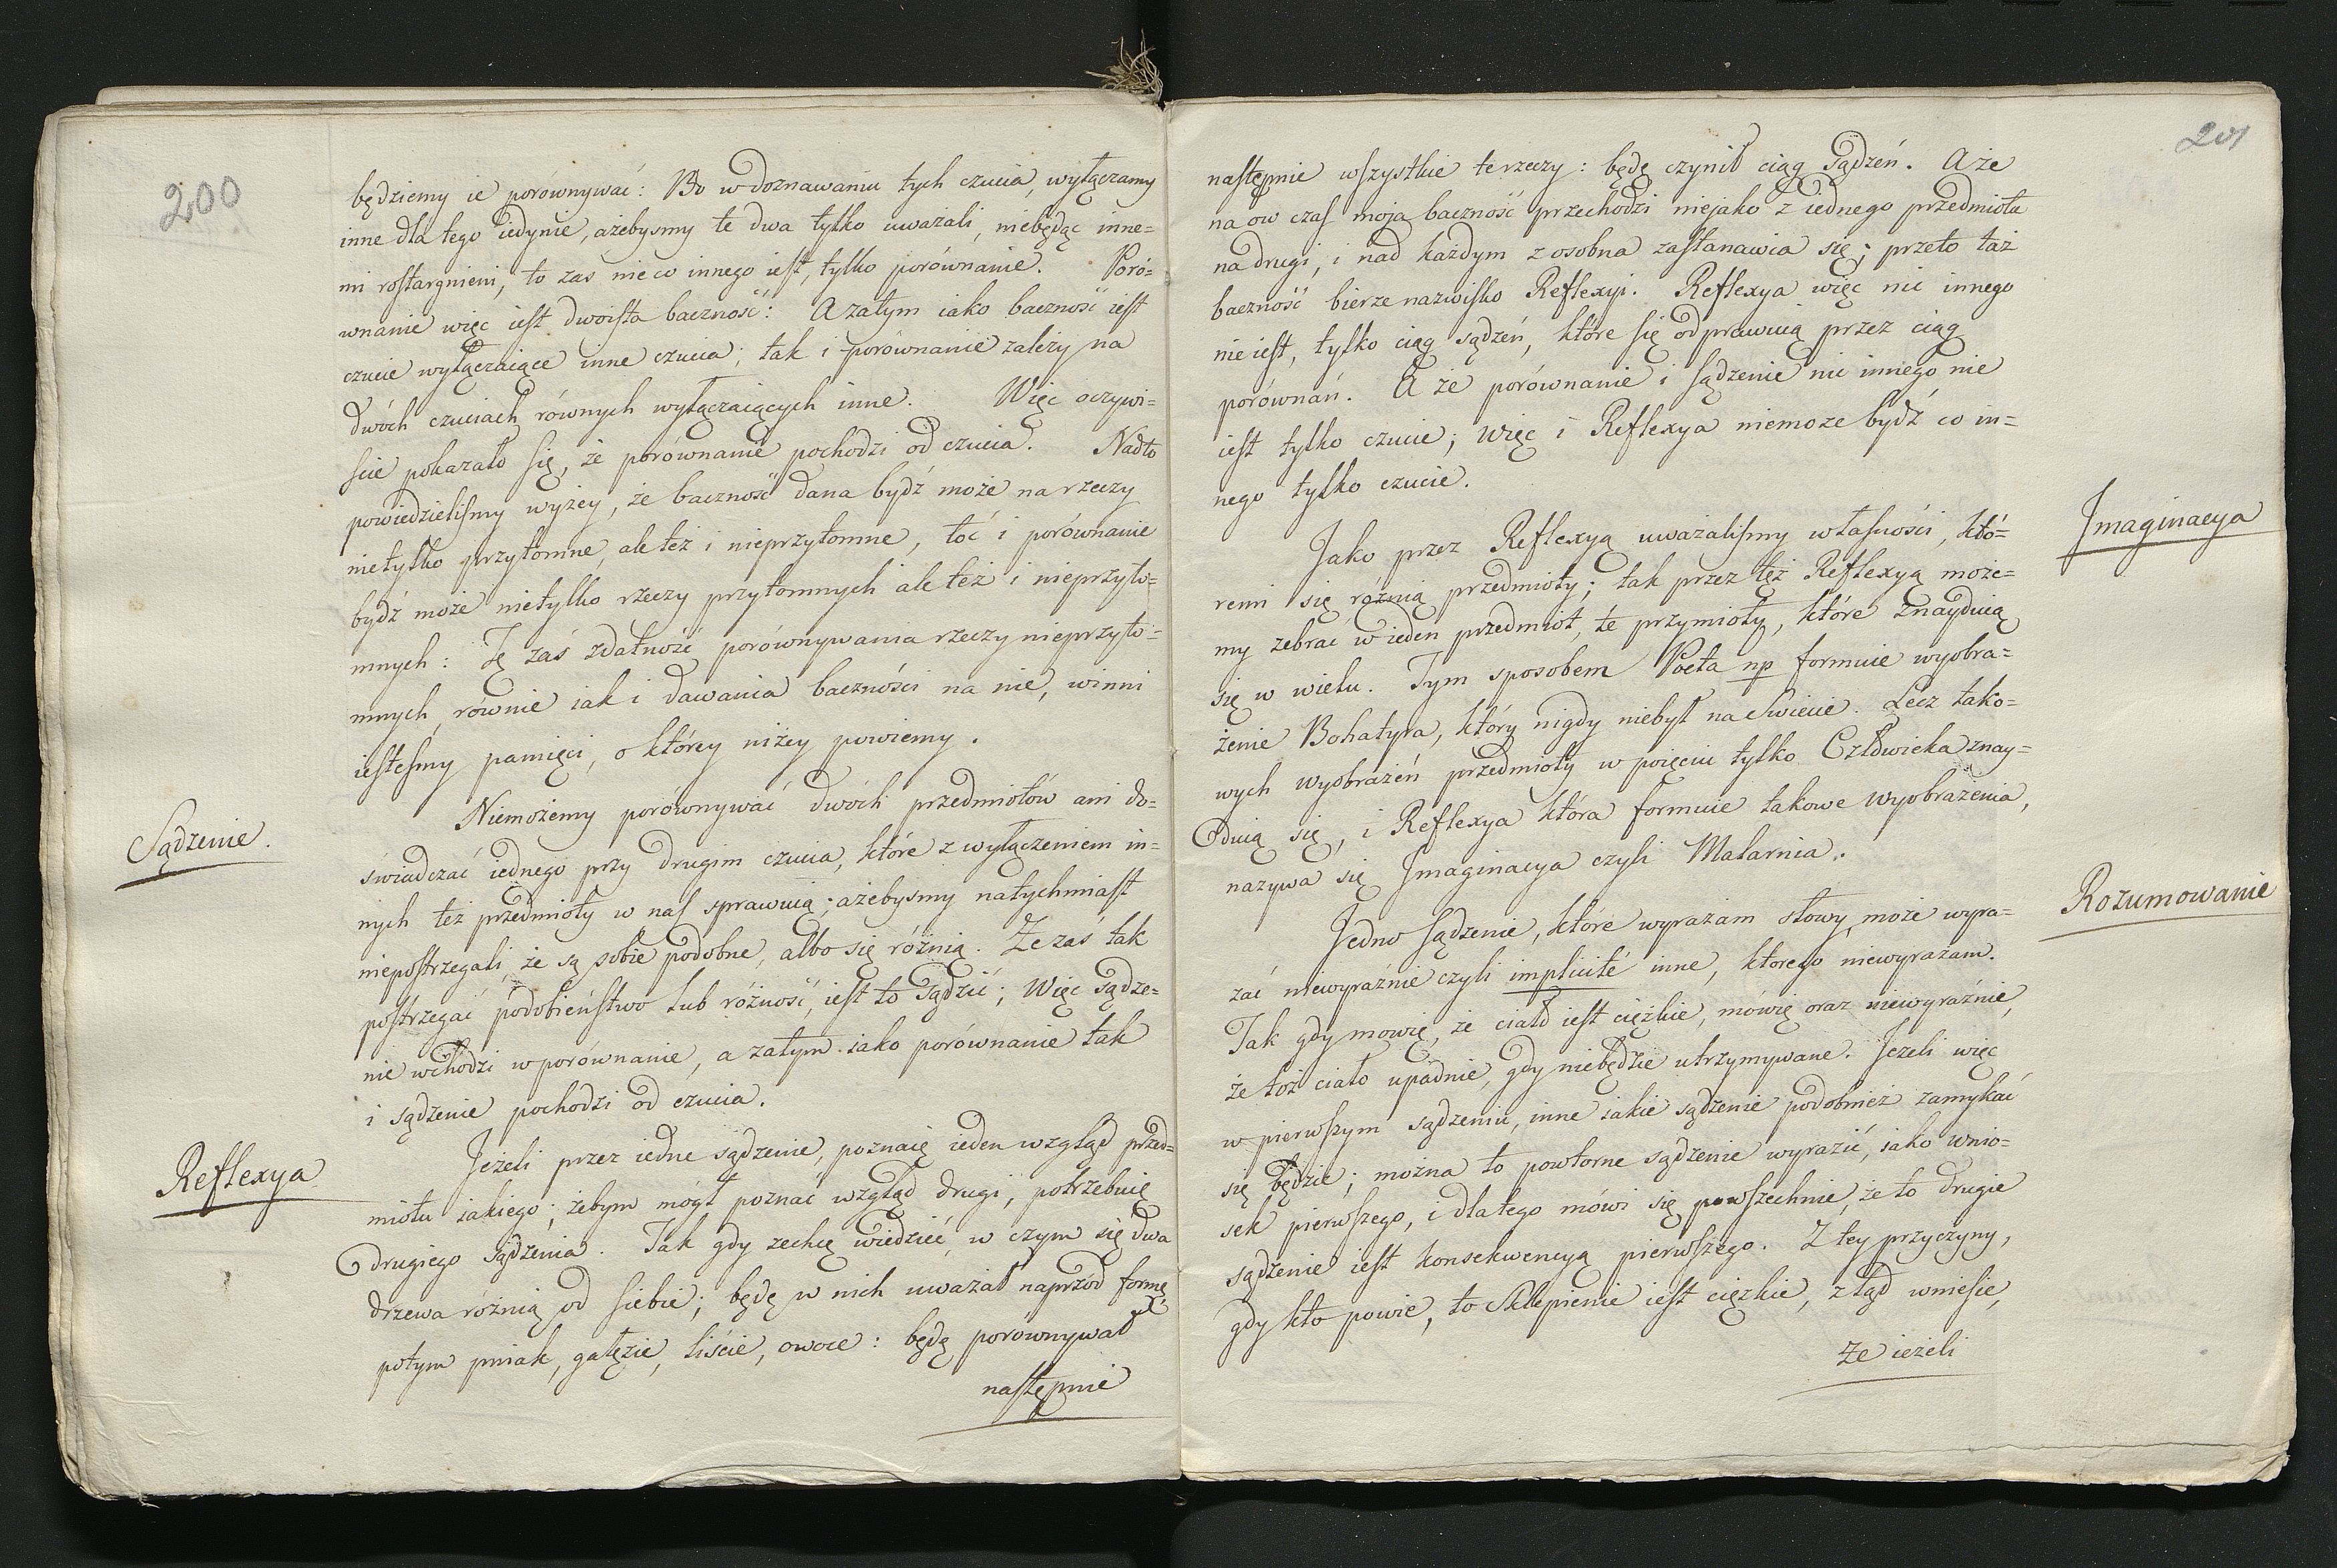 200
będziemy ie porównywać: Bo w doznawaniu tych czucia, wyłączamy
inne dla tego iedynie, ażebysmy te dwa tylko uważali, niebędąc inne=
mi rostargnieni, to zas nie co innego iest, tylko porównanie. Poró=
wnanie więc iest dwoista baczność: A zatym iako baczność iest
czucie wyłączaiące inne czucia; tak i porównanie zależy na
dwóch czuciach równych wyłączaiących inne. Więc oczywi=
scie pokazało się, że porównanie pochodzi od czucia. Nadto
powiedzielismy wyżey, że baczność dana bydź może na rzeczy
nietylko przytomne, ale też i nieprzytomne, toć i porównanie
bydź może nietylko rzeczy przytomnych ale też i nieprzyto=
mnych: Tę zaś zdatność porównywania rzeczy nieprzyto=
mnych, równie iak i dawania baczności na nie, winni
iestesmy pamięci, o którey niżey powiemy.
Sądzenie.
Niemożemy porównywać dwóch przedmiotów ani do=
świadczać iednego przy drugim czucia, które z wyłączeniem in=
nych też przedmioty w nas sprawuią; ażebysmy natychmiast
niepostrzegali, że są sobie podobne, albo się różnią. Że zaś tak
postrzegać podobieństwo lub różność, iest to sądzić; Więc sądze=
nie wchodzi w porównanie, a zatym iako porównanie tak
i sądzenie pochodzi od czucia.
Reflexya
Jeżeli przez iedne sądzenie, poznaię ieden wzgląd przed=
miotu iakiego; żebym mógł poznać wzgląd drugi, potrzebuię
drugiego sądzenia. Tak gdy zechcę wiedzieć, w czym się dwa
drzewa różnią od siebie; będę w nich uważał naprzód formę
potym pniak, gałęzie, liście, owoce: będę porównywał
następnie
201
następnie wszystkie te rzeczy: będę czynił ciąg sądzeń. A że
na ów czas moja baczność przechodzi niejako z iednego przedmiota
na drugi, i nad każdym z osobna zastanawia się; przeto taż
baczność bierze nazwisko Reflexyi. Reflexya więc nic innego
nie iest, tylko ciąg sądzeń, które się odprawuią przez ciąg
porównań. A że porównanie i sądzenie nic innego nie
iest tylko czucie; Więc i Reflexya niemoże bydź co in=
nego tylko czucie.
Imaginacya
Jako przez Reflexyą uważalismy własności, któ=
remi się różnią przedmioty; tak przez tęż Reflexyą może=
my zebrać w ieden przedmiot, te przymioty, które znayduią
się w wielu. Tym sposobem Poeta np formuie wyobra=
żenie Bohatyra, który nigdy niebył na Swiecie. Lecz tako=
wych wyobrażeń przedmioty w poięciu tylko Człowieka znay=
duią się, i Reflexya która formuie takowe wyobrażenia,
nazywa się Imaginacya czyli Malarnia.
Rozumowanie
Jedno sądzenie, które wyrażam słowy, może wyra=
żać niewyraźnie czyli implicité inne, ktorego niewyrażam.
Tak gdy mowię, że ciało iest ciężkie, mówię oraz niewyraźnie,
że toż ciało upadnie, gdy niebędzie utrzymywane. Jeżeli więc
w pierwszym sądzeniu, inne iakie sądzenie podobnież zamykać
się będzie; można to powtorne sądzenie wyrazić, iako wnio=
sek pierwszego, i dlatego mówi się powszechnie, że to drugie
sądzenie iest konsekwencyą pierwszego. Z tey przyczyny,
gdy kto powie, to Sklepienie iest ciężkie, ztąd wniesie,
że ieżeli